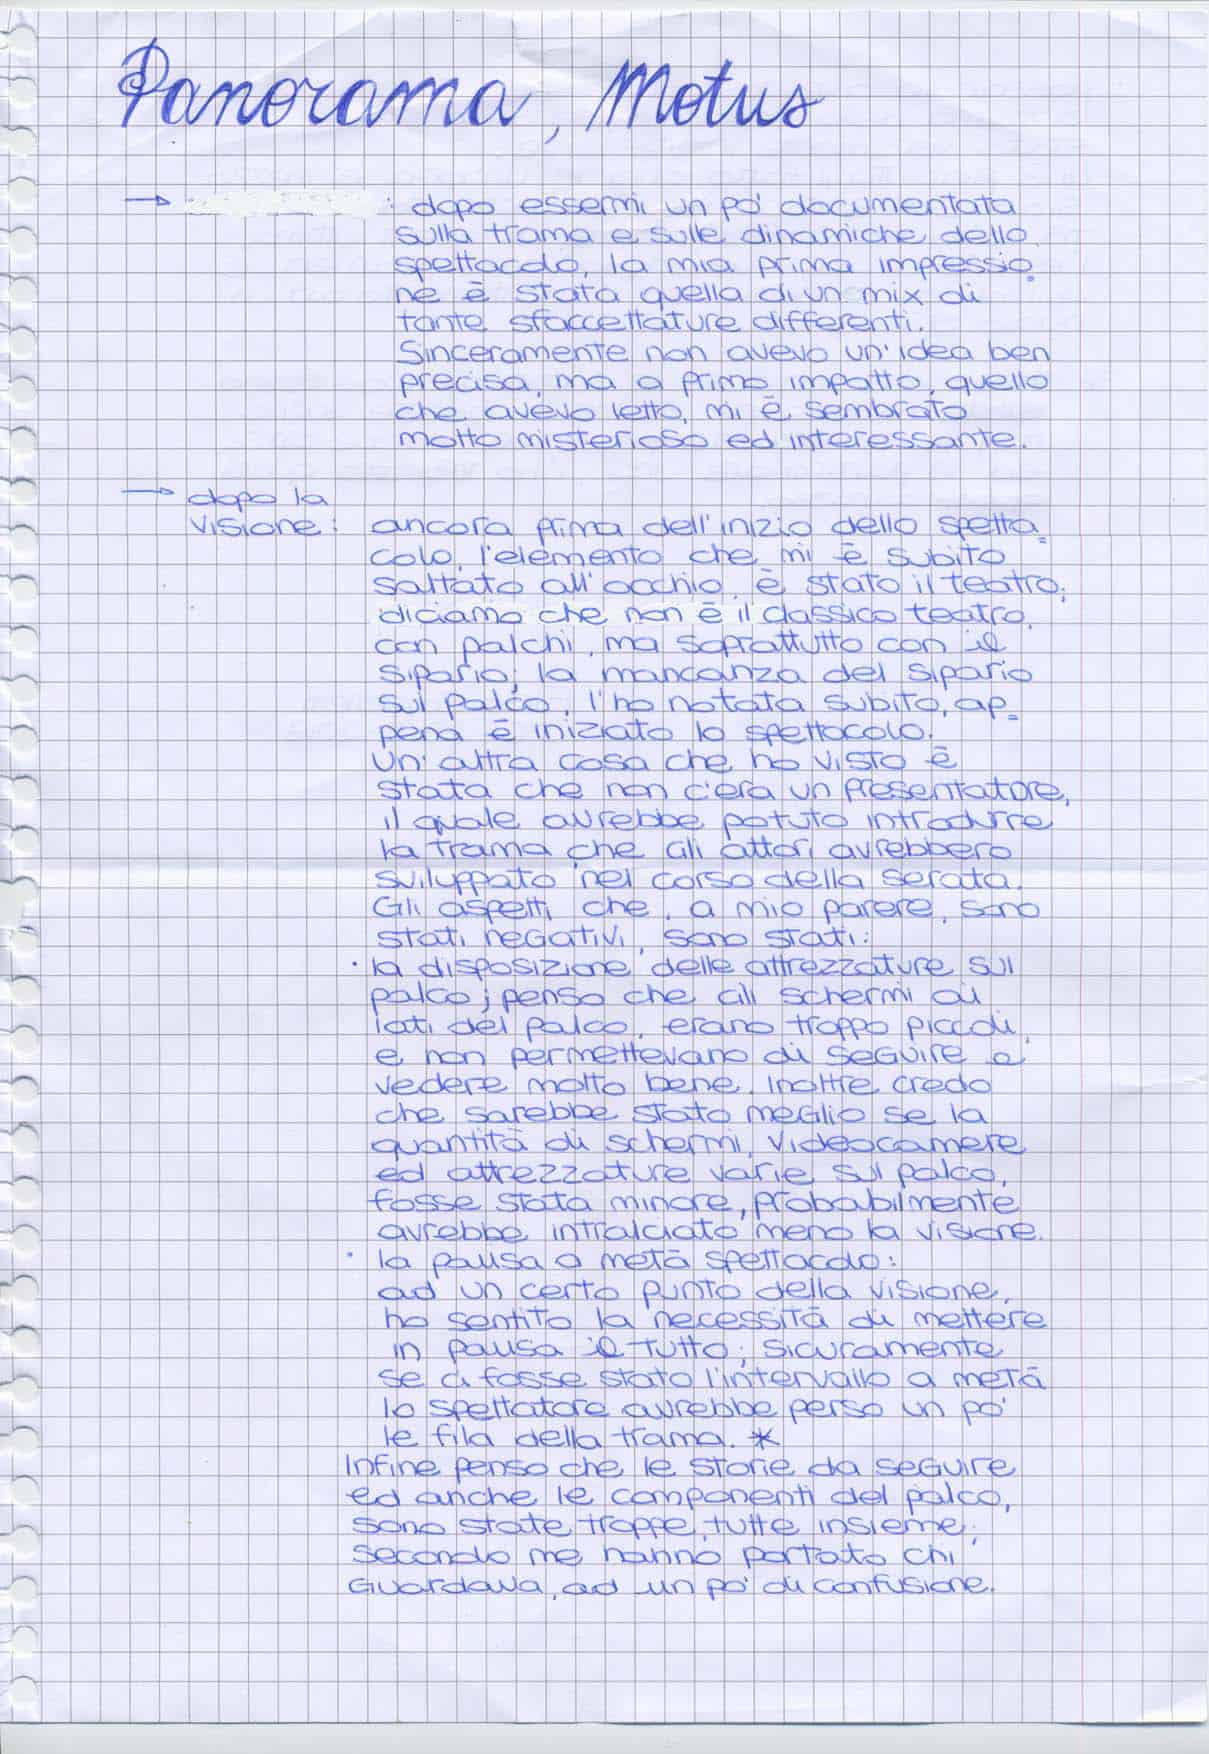 Panorama, Motus
→ : dopo essermi un po' documentata
sulla trama e sulle dinamiche dello
spettacolo, la mia prima impressio=
ne è stata quella di un mix di
tante sfaccettature differenti.
Sinceramente non avevo un'idea ben
precisa, ma a primo impatto, quello
che avevo letto, mi è sembrato
molto misterioso ed interessante.
→ dopo la
visione: ancora prima dell'inizio dello spetta=
colo, l'elemento che mi è subito
saltato all'occhio, è stato il teatro;
diciamo che non è il classico teatro,
con palchi, ma soprattutto con il
sipario; la mancanza del sipario
sul palco, l'ho notata subito, ap=
pena è iniziato lo spettacolo.
Un'altra cosa che ho visto è
stata che non c'era un presentatore,
il quale avrebbe potuto introdurre
la trama che gli attori avrebbero
sviluppato nel corso della serata.
Gli aspetti che, a mio parere, sono
stati negativi, sono stati:
· la disposizione delle attrezzature sul
palco; penso che gli schermi ai
lati del palco, erano troppo piccoli,
e non permettevano di seguire e
vedere molto bene. Inoltre credo
che sarebbe stato meglio se la
quantità di schermi, videocamere
ed attrezzature varie sul palco,
fosse stata minore, probabilmente
avrebbe intralciato meno la visione.
· la pausa a metà spettacolo:
ad un certo punto della visione,
ho sentito la necessità di mettere
in pausa il tutto; sicuramente
se ci fosse stato l'intervallo a metà
lo spettatore avrebbe perso un po'
le fila della trama. *
Infine penso che le storie da seguire
ed anche le componenti del palco,
sono state troppe, tutte insieme;
secondo me hanno portato chi
guardava, ad un po' di confusione.